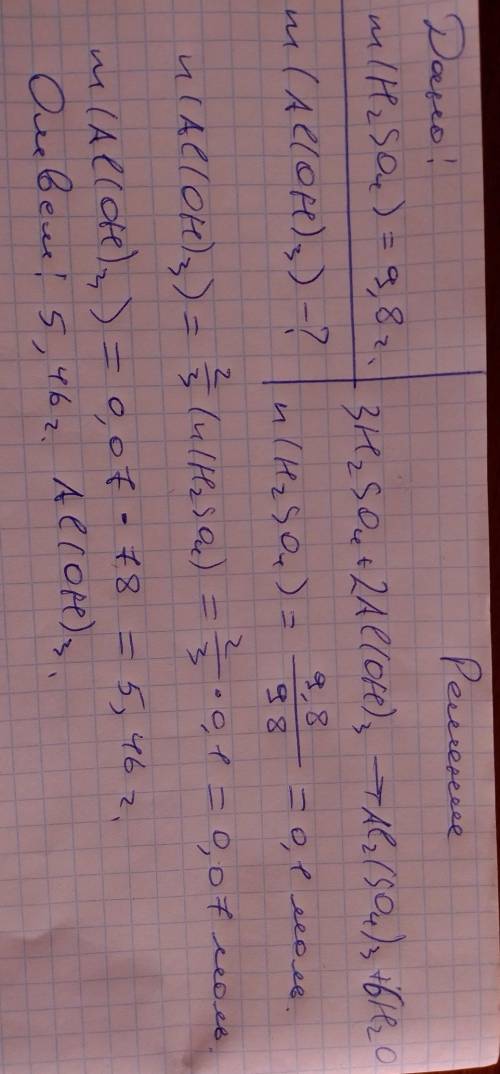 Дано:
m(H₂SO₄) = 9,8 г.
m(Al(OH)₃) – ?
Решение
3H₂SO₄ + 2Al(OH)₃ → Al₂(SO₄)₃ + 6H₂O
n(H₂SO₄) = 9,8/98 = 0,1 моль.
n(Al(OH)₃) = 2/3 (n(H₂SO₄) = 2/3 · 0,1 = 0,07 моль.
m(Al(OH)₃) = 0,07 · 78 = 5,46 г.
Ответ: 5,46 г. Al(OH)₃.